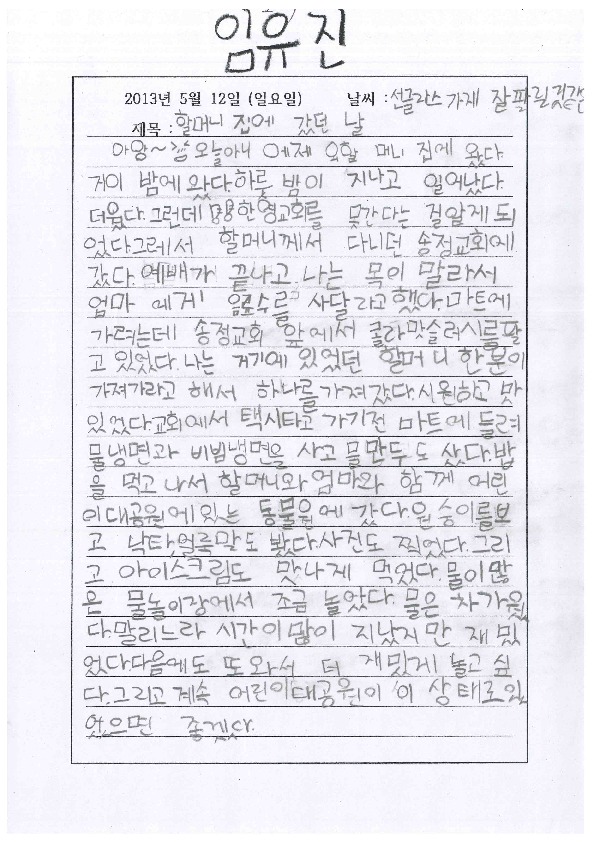 임유진
2013년 5월 12일 (일요일) 날씨 : 선글라스 가게 잘 팔릴
제목 : 할머니 집에 갔던 날
아왕~ 오늘아니 어제 할 머니 집에 왔다.
거이 밤에 왔다. 하룻 밤이 지나고 일어났다.
더웠다. 그런데 교회를 못간다는 걸알게되
었다 그레서 할머니께서 다니던 송정교회에
갔다. 예배가 끝나고, 나는 목이 말라서
엄마 에게 음료수를 사달라고 했다. 마트에
가려는데 송정교회 앞에서 콜라맛슬러시를 팔
고 있었다. 나는 거기에 있었던 할머니 한분이
가져가라고 해서 하나를 가져갔다. 시원하고 맛
있었다 교회에서 택시타고 가기전 마트에 들려
물냉면과 비빔냉면을 사고 물만두도 샀다. 밥
을 먹고 나서 할머니와 엄마와 함께 어린
이대공원에 있는 동물원에 갔다. 원숭이를보
고 낙타, 얼룩말도 봤다. 사진도 찍었다. 그리
고 아이스크림도 맛나게 먹었다. 물이많
은 물놀이장에서 조금 놀았다. 물은 차가웠
다. 말리느라 시간이많이 지났지만 재밌
었다 다음에도 또 와서 더 재밌게 놀고 싶
다. 그리고 계속 어린이대공원이 이 상태로있
었으면 좋겠다.